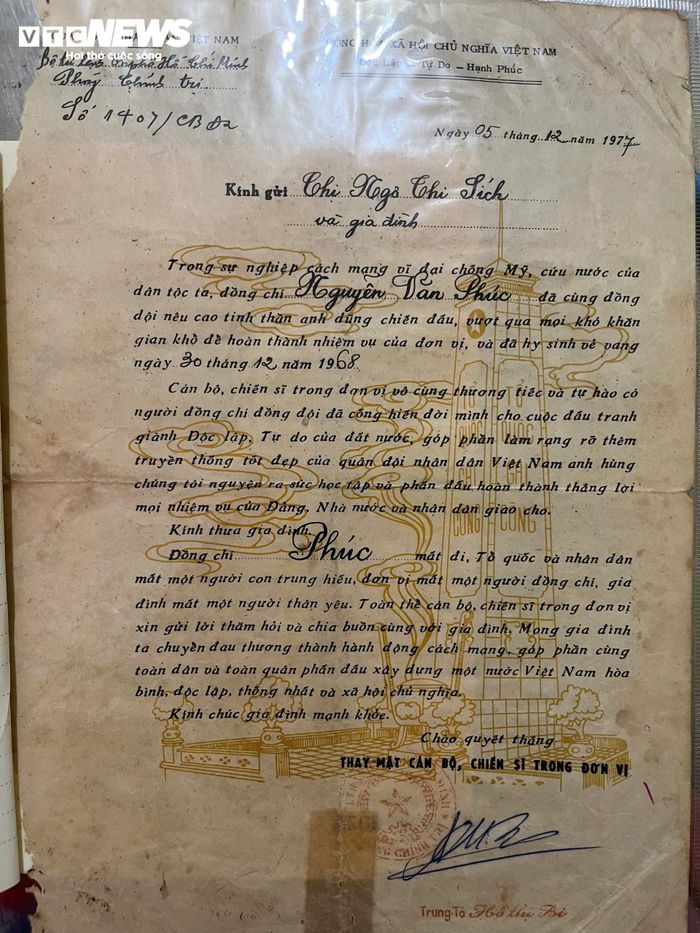 VTC NEWS
Hơi thở cuộc sống
VIỆT NAM
CỘNG HÒA XÃ HỘI CHỦ NGHĨA VIỆT NAM
Độc Lập – Tự Do – Hạnh Phúc
Bộ tư lệnh Hồ Chí Minh
Phòng Chính trị
Số 1407/CB
Ngày 05 tháng 12 năm 1977
Kính gửi Chị Ngô Thị Sích
và gia đình
Trong sự nghiệp cách mạng vĩ đại chống Mỹ, cứu nước của
dân tộc ta, đồng chí Nguyễn Văn Phúc đã cùng đồng
đội nêu cao tinh thần anh dũng chiến đấu, vượt qua mọi khó khăn
gian khổ để hoàn thành nhiệm vụ của đơn vị, và đã hy sinh vẻ vang
ngày 30 tháng 12 năm 1968.
Cán bộ, chiến sĩ trong đơn vị vô cùng thương tiếc và tự hào có
người đồng chí đồng đội đã cống hiến đời mình cho cuộc đấu tranh
giành Độc lập, Tự do của đất nước, góp phần làm rạng rỡ thêm
truyền thống tốt đẹp của quân đội nhân dân Việt Nam anh hùng
chúng tôi nguyện ra sức học tập và phấn đấu hoàn thành thắng lợi
mọi nhiệm vụ của Đảng, Nhà nước và nhân dân giao cho.
Kính thưa gia đình,
Đồng chí Phúc mất đi, Tổ quốc và nhân dân
mất một người con trung hiếu, đơn vị mất một người đồng chí, gia
đình mất một người thân yêu. Toàn thể cán bộ, chiến sĩ trong đơn vị
xin gửi lời thăm hỏi và chia buồn cùng với gia đình. Mong gia đình
ta chuyển đau thương thành hành động cách mạng, góp phần cùng
toàn dân và toàn quân phấn đấu xây dựng một nước Việt Nam hòa
bình, độc lập, thống nhất và xã hội chủ nghĩa.
Kính chúc gia đình mạnh khỏe.
Chào quyết thắng
THAY MẶT CÁN BỘ, CHIẾN SĨ TRONG ĐƠN VỊ
Trung Tá Hồ Thị Bi